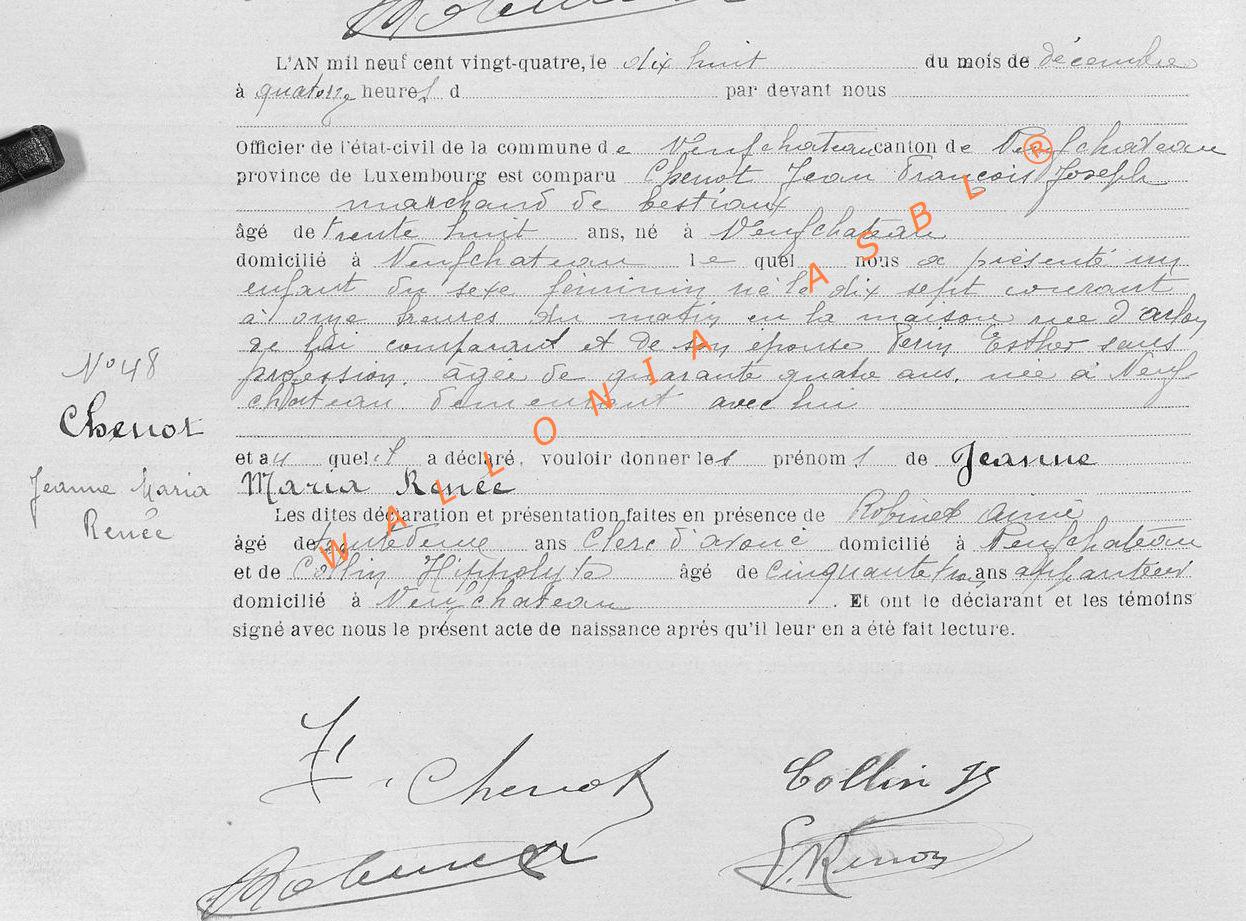 L'AN mil neuf cent vingt-quatre, le dix huit du mois de décembre
à quatorze heures d par devant nous
Officier de l'état-civil de la commune de Neufchateau canton de Neufchateau
province de Luxembourg est comparu Chenot Jean François Joseph
marchand de bestiaux
âgé de trente huit ans, né à Neufchateau
domicilié à Neufchateau le quel nous a présenté un
enfant du sexe féminin né le dix sept courant
à onze heures du matin en la maison rue d'arlon
de lui comparant et de son épouse Esther sans
profession, âgée de quarante quatre ans, née à Neuf
chateau demeurant avec lui
No 48
Chenot
Jeanne Maria
Renée
et au quel il a déclaré, vouloir donner les prénoms de Jeanne
Maria Renée
Les dites déclaration et présentation faites en présence de Robinet Aimé
âgé de ans Clerc d'avoué domicilié à Neufchateau
et de Collin Hippolyte âgé de cinquante ans appariteur
domicilié à Neufchateau . Et ont le déclarant et les témoins
signé avec nous le présent acte de naissance après qu'il leur en a été fait lecture.
WALLONIA ASBL ®
F. Chenot
Collin H
Robinet